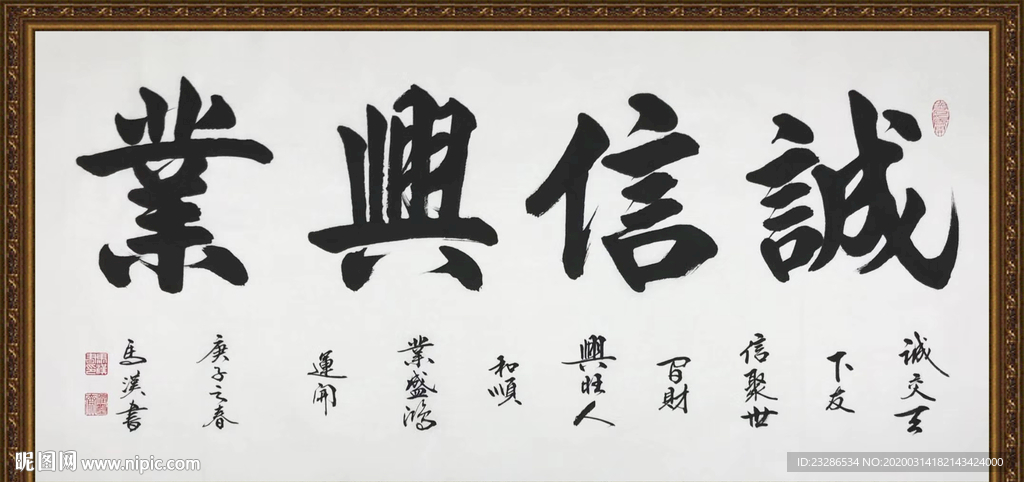 誠信興業
誠交天
下友
信聚世
間財
興旺人
和順
業盛鴻
運開
庚子之春
馬漢書
昵图网 www.nipic.com
ID:23286534 NO:20200314182143424000